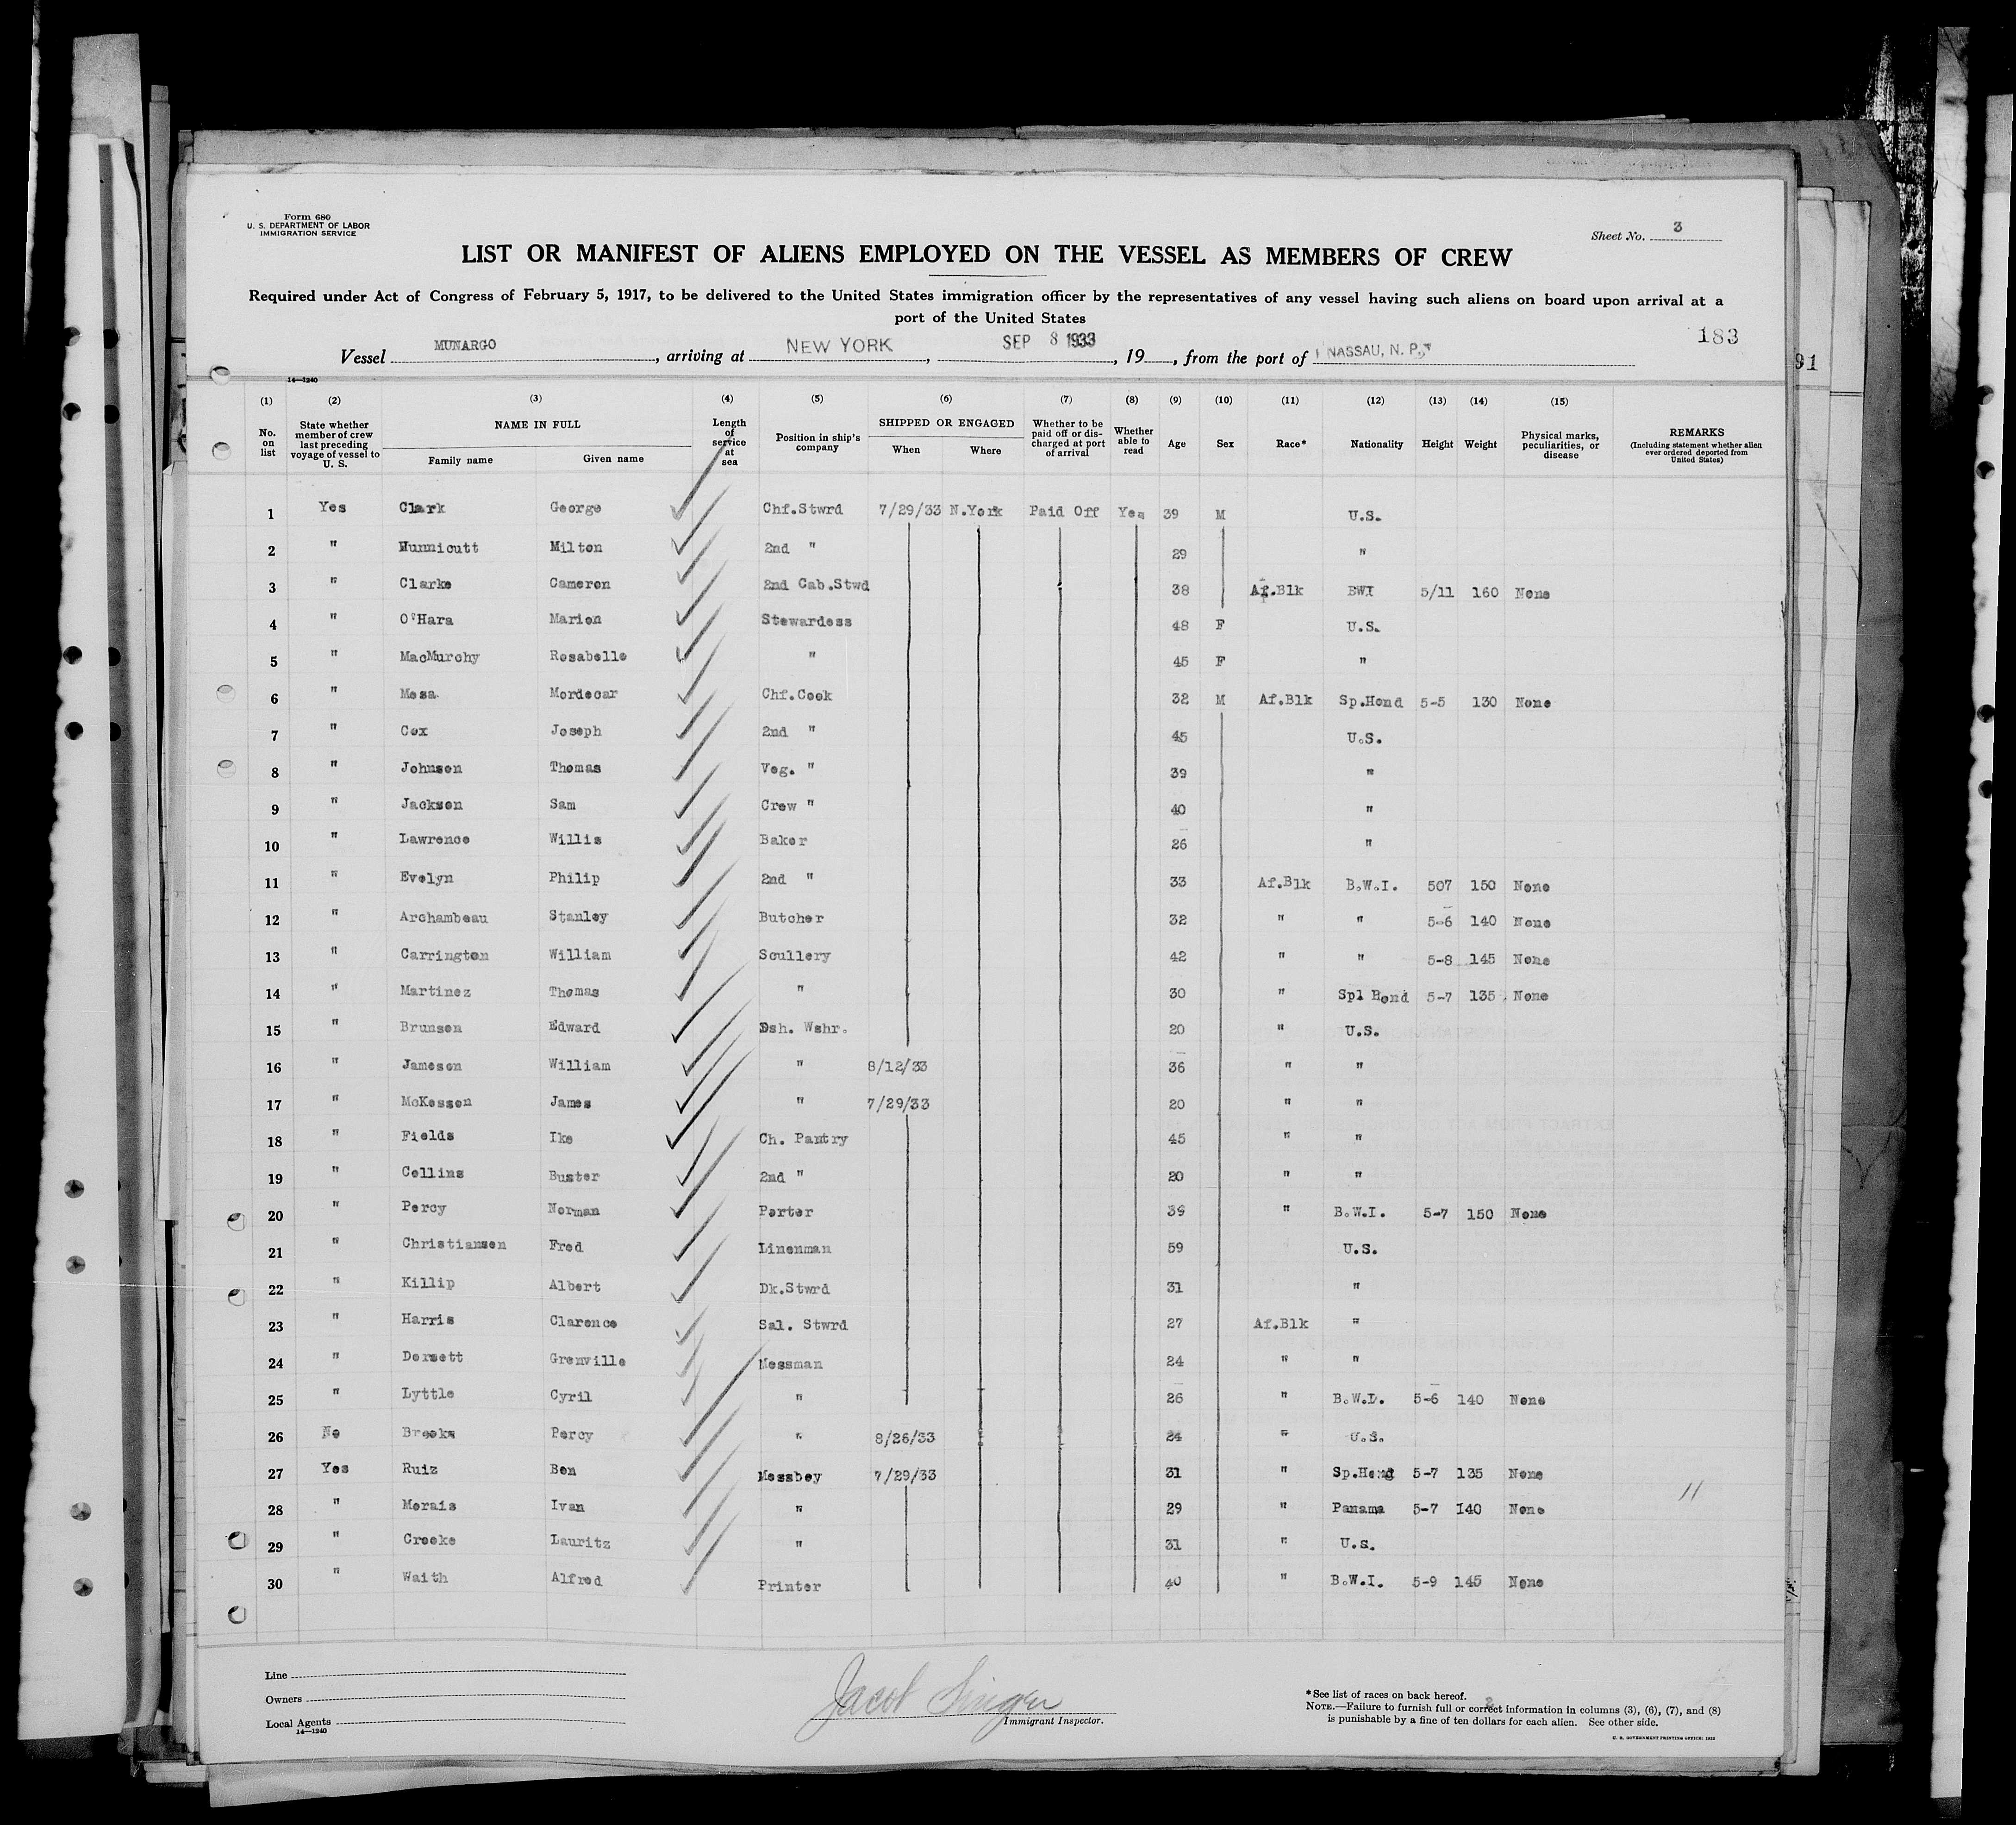 Form 680
U. S. DEPARTMENT OF LABOR
IMMIGRATION SERVICE
Sheet No. 3
LIST OR MANIFEST OF ALIENS EMPLOYED ON THE VESSEL AS MEMBERS OF CREW
Required under Act of Congress of February 5, 1917, to be delivered to the United States immigration officer by the representatives of any vessel having such aliens on board upon arrival at a
port of the United States
183
Vessel MUNARGO, arriving at NEW YORK, SEP 8 1933, 19, from the port of NASSAU, N. P.
91
14—1240
(1) (2) (3) (4) (5) (6) (7) (8) (9) (10) (11) (12) (13) (14) (15)
No. on list State whether member of crew last preceding voyage of vessel to U. S. NAME IN FULL Family name Given name Length of service at sea Position in ship's company SHIPPED OR ENGAGED When Where Whether to be paid off or discharged at port of arrival Whether able to read Age Sex Race* Nationality Height Weight Physical marks, peculiarities, or disease REMARKS (Including statement whether alien ever ordered deported from United States)
1 Yes Clark George Chf.Stwrd 7/29/33 N.York Paid Off Yes 39 M U.S.
2 " Hunnicutt Milton 2nd " 29 "
3 " Clarke Cameron 2nd Cab.Stwd 38 Af.Blk BWI 5/11 160 None
4 " O'Hara Marion Stewardess 48 F U.S.
5 " MacMurchy Rosabelle " 45 F "
6 " Mesa Mordecar Chf.Cook 32 M Af.Blk Sp.Hond 5-5 130 None
7 " Cox Joseph 2nd " 45 U.S.
8 " Johnson Thomas Veg. " 39 "
9 " Jackson Sam Crew " 40 "
10 " Lawrence Willis Baker 26 "
11 " Evelyn Philip 2nd " 33 Af.Blk B.W.I. 507 150 None
12 " Archambeau Stanley Butcher 32 " " 5-6 140 None
13 " Carrington William Scullery 42 " " 5-8 145 None
14 " Martinez Thomas " 30 " Spl Hond 5-7 135 None
15 " Brunson Edward Dsh. Wshr. 20 " U.S.
16 " Jameson William " 8/12/33 36 " "
17 " McKessen James " 7/29/33 20 " "
18 " Fields Ike Ch. Pantry 45 " "
19 " Collins Buster 2nd " 20 " "
20 " Percy Norman Porter 39 " B.W.I. 5-7 150 None
21 " Christiansen Fred Linenman 59 U.S.
22 " Killip Albert Dk.Stwrd 31 "
23 " Harris Clarence Sal. Stwrd 27 Af.Blk "
24 " Dorsett Grenville Messman 24 " "
25 " Lyttle Cyril " 26 " B.W.I. 5-6 140 None
26 No Brooks Percy " 8/26/33 24 " U.S.
27 Yes Ruiz Ben Messboy 7/29/33 31 " Sp.Hond 5-7 135 None
28 " Morais Ivan " 29 " Panama 5-7 140 None 11
29 " Crooke Lauritz " 31 " U.S.
30 " Waith Alfred Printer 40 " B.W.I. 5-9 145 None
Line
Owners
Local Agents
14—1240
Jacob Singer
Immigrant Inspector.
*See list of races on back hereof.
NOTE.—Failure to furnish full or correct information in columns (3), (6), (7), and (8)
is punishable by a fine of ten dollars for each alien. See other side.
U. S. GOVERNMENT PRINTING OFFICE: 1932